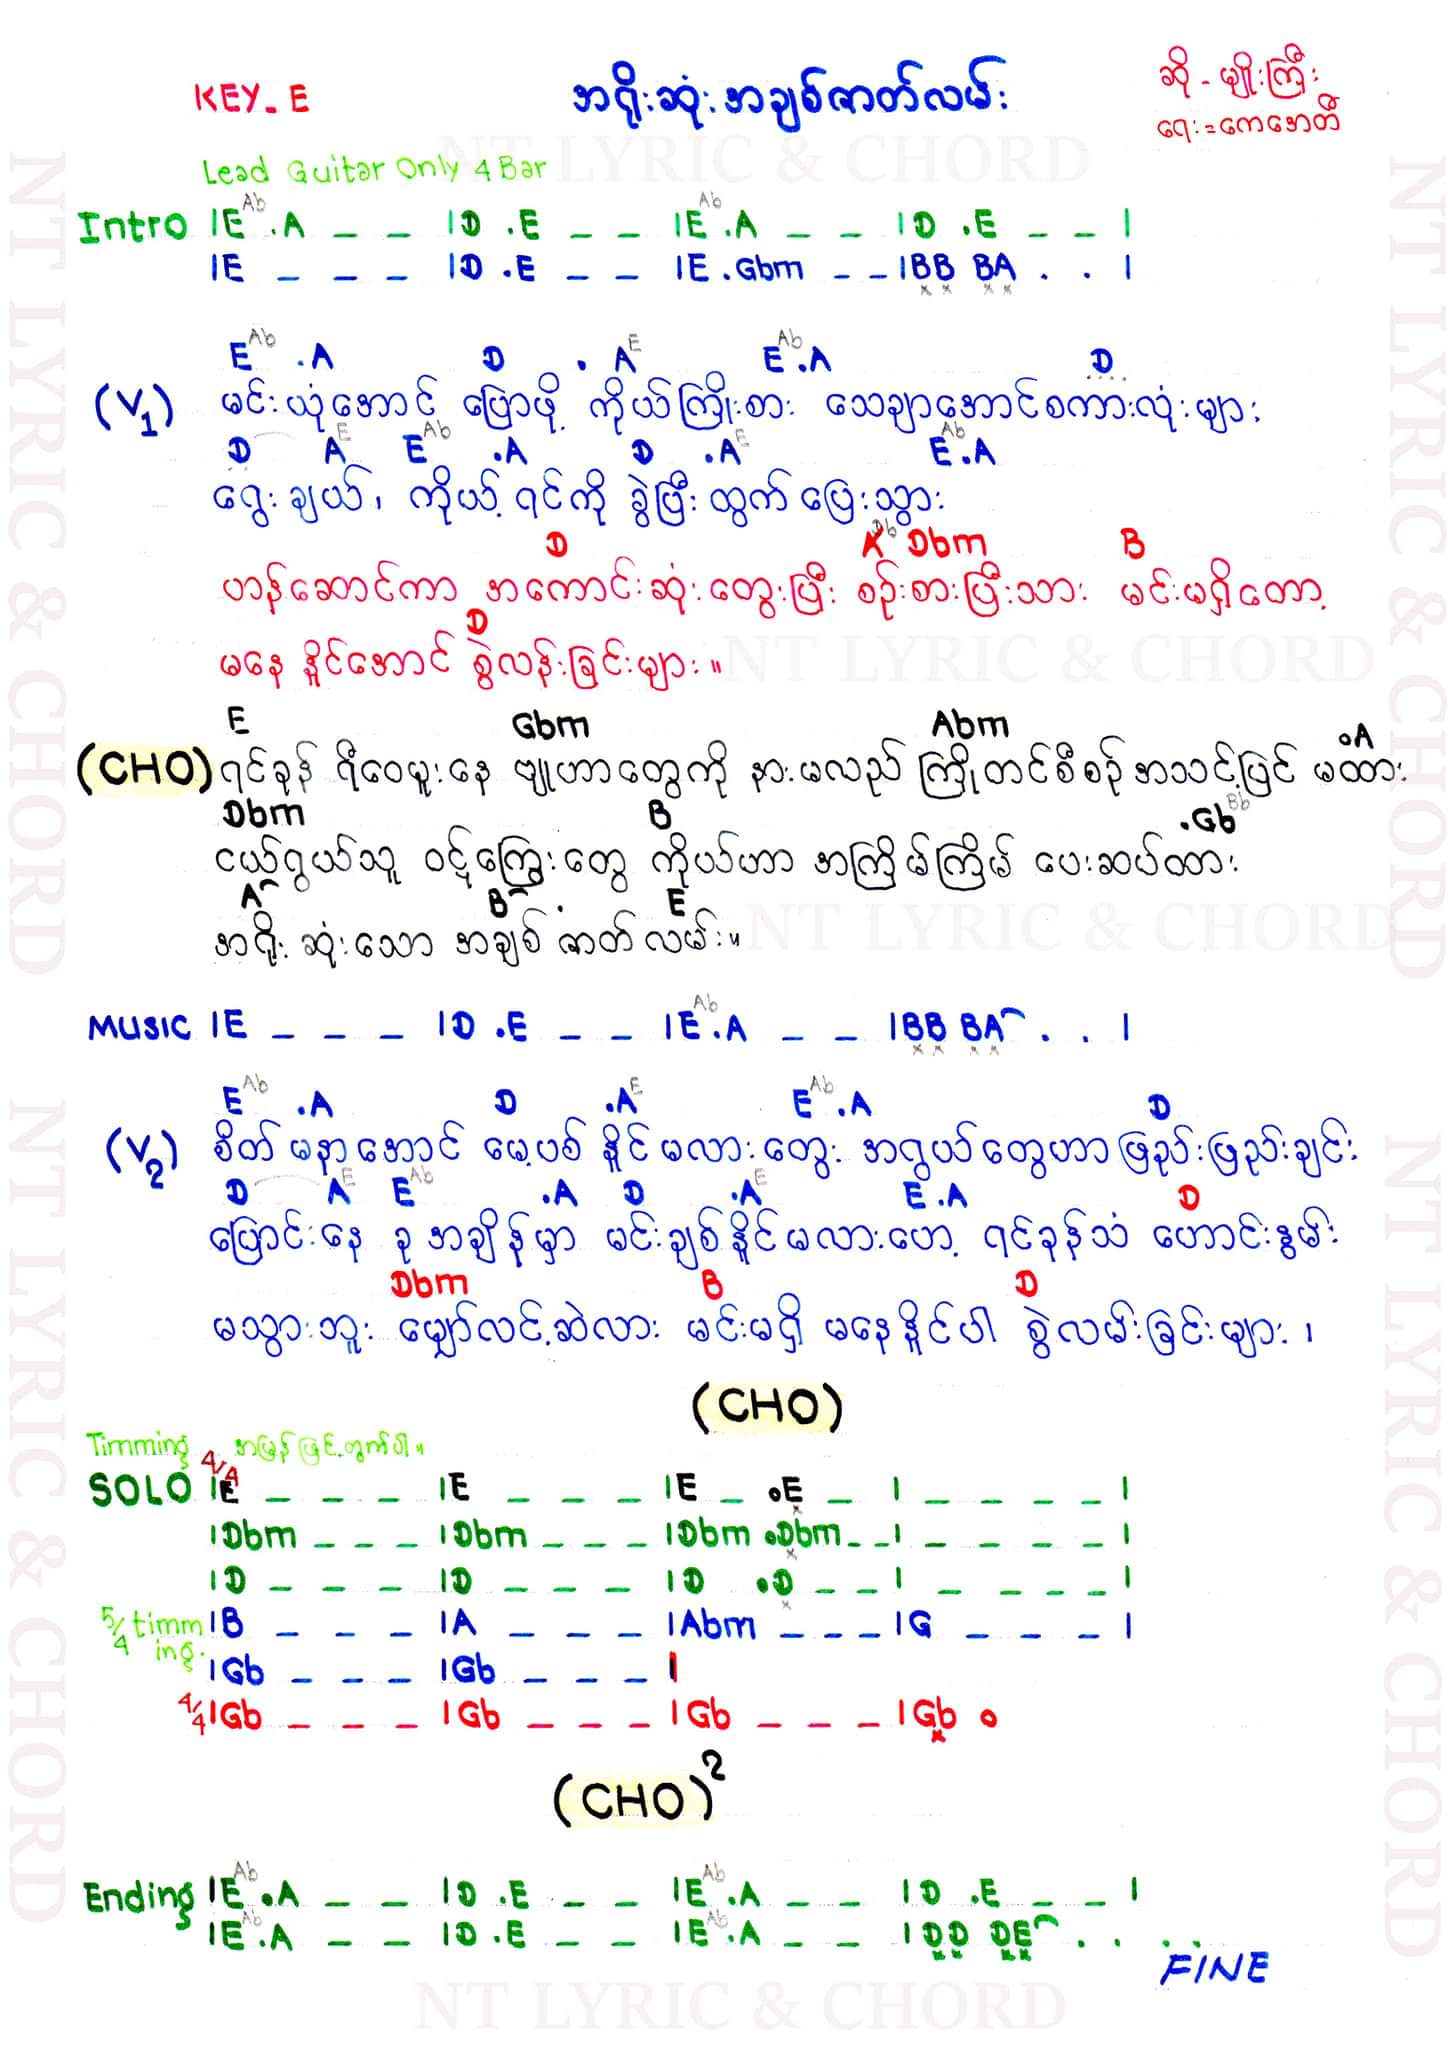 KEY_E
အရိုးဆုံးအချစ်ဇာတ်လမ်း
ဆို - မျိုးကြီး
ရေး = ကေအေတီ
Lead Guitar Only 4 Bar
Intro |E Ab .A _ _ |D .E _ _ |E Ab .A _ _ |D .E _ _ |
|E _ _ _ |D .E _ _ |E .Gbm _ _ |BB BA . . |
x x x x
E Ab .A D . A E E Ab .A D
(V1) မင်းယုံအောင့် ပြောဖို့ ကိုယ်ကြိုးစား သေချာအောင်စကားလုံးများ
D A E E Ab .A D .A E E Ab .A
ရွေးချယ်၊ ကိုယ့်ရင်ကို ခွဲပြီးထွက်ပြေးသွား
D A Db Dbm B
ဟန်ဆောင်ကာ အကောင်းဆုံးတွေးပြီး စဉ်းစားပြီးသား မင်းမရှိတော့
D
မနေနိူင်အောင် စွဲလန်းခြင်းများ။
E Gbm Abm .A
(CHO) ရင်ခုန် ရီဝေမူးနေ ဗျူဟာတွေကို နားမလည် ကြိုတင်စီစဉ် အသင့်ပြင် မထား
Dbm B .Gb Bb
ငယ်ရွယ်သူ ဝဋ်ကြွေးတွေ ကိုယ်ဟာ အကြိမ်ကြိမ် ပေးဆပ်ထား
A B . E
အရိုးဆုံးသော အချစ်ဇာတ်လမ်း။
MUSIC |E _ _ _ |D .E _ _ |E Ab .A _ _ |BB BA . . |
x x x x
E Ab .A D .A E E Ab .A D
(V2) စိတ်မနာအောင် မေ့ပစ်နိူင်မလားတွေး အရွယ်တွေဟာဖြည်းဖြည်းချင်း
D A E E Ab .A D .A E E .A D
ပြောင်းနေ ခုအချိန်မှာ မင်းချစ်နိူင်မလားဟေ့ ရင်ခုန်သံ ဟောင်းနွမ်း
Dbm B D
မသွားဘူး မျှော်လင့်ဆဲလား မင်းမရှိ မနေနိူင်ပါ စွဲလမ်းခြင်းများ၊
(CHO)
Timming အမြန်ဖြင့်တွက်ပါ။
4/4
SOLO |E _ _ _ |E _ _ _ |E _ .E _ | _ _ _ _ |
x
|Dbm _ _ _ |Dbm _ _ _ |Dbm .Dbm _ _ | _ _ _ _ |
x
|D _ _ _ |D _ _ _ |D .D _ _ | _ _ _ _ |
x
5/4 timming. |B _ _ _ |A _ _ _ |Abm _ _ _ |G _ _ _ |
|Gb _ _ _ |Gb _ _ _ |
4/4 |Gb _ _ _ |Gb _ _ _ |Gb _ _ _ |Gb .
x
(CHO)2
Ending |E Ab .A _ _ |D .E _ _ |E Ab .A _ _ |D .E _ _ |
|E Ab .A _ _ |D .E _ _ |E Ab .A _ _ |DD DE . . . .
x x x x
FINE
NT LYRIC & CHORD
NT LYRIC & CHORD
NT LYRIC & CHORD
NT LYRIC & CHORD
NT LYRIC & CHORD
NT LYRIC & CHORD
NT LYRIC & CHORD
NT LYRIC & CHORD